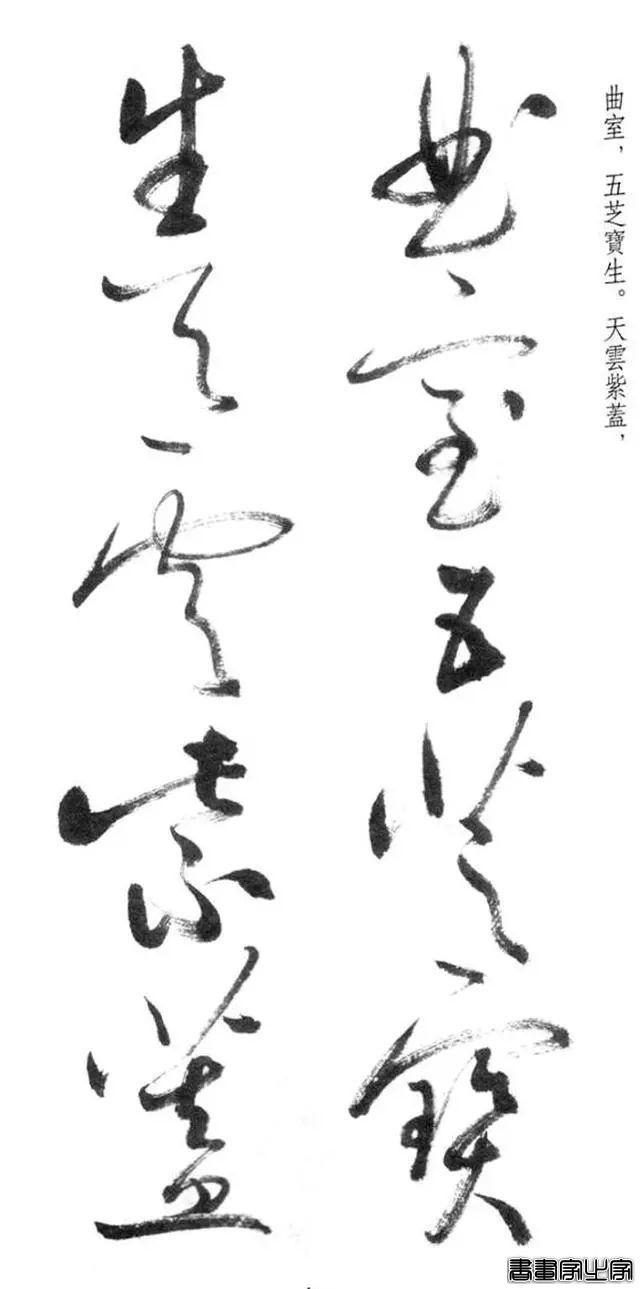 曲室，五芝寶生。天雲紫蓋，
曲室五芝寶
生天雲紫蓋
書畫家之家